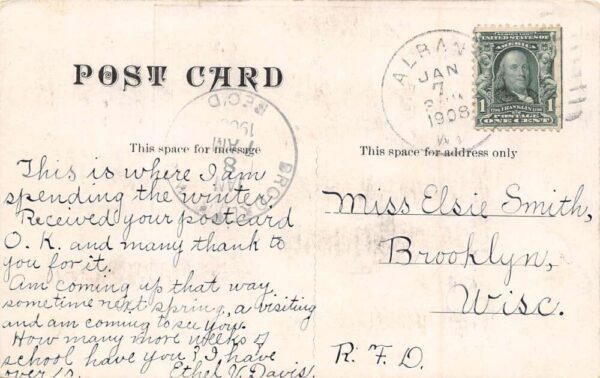 POST CARD
This space for message
This is where I am
spending the winter.
Received your postcard
O. K. and many thank to
you for it.
Am coming up that way
sometime next spring, a visiting
and am coming to see you.
How many more weeks of
school have you? I have
over 10.
Ethel V. Davis.
This space for address only
Miss Elsie Smith,
Brooklyn,
Wisc.
R. F. D.
ALBANY
JAN
7
1908
REC'D
AM
8
SERIES 1902
UNITED STATES OF
AMERICA
1
FRANKLIN
1
POSTAGE
ONE CENT